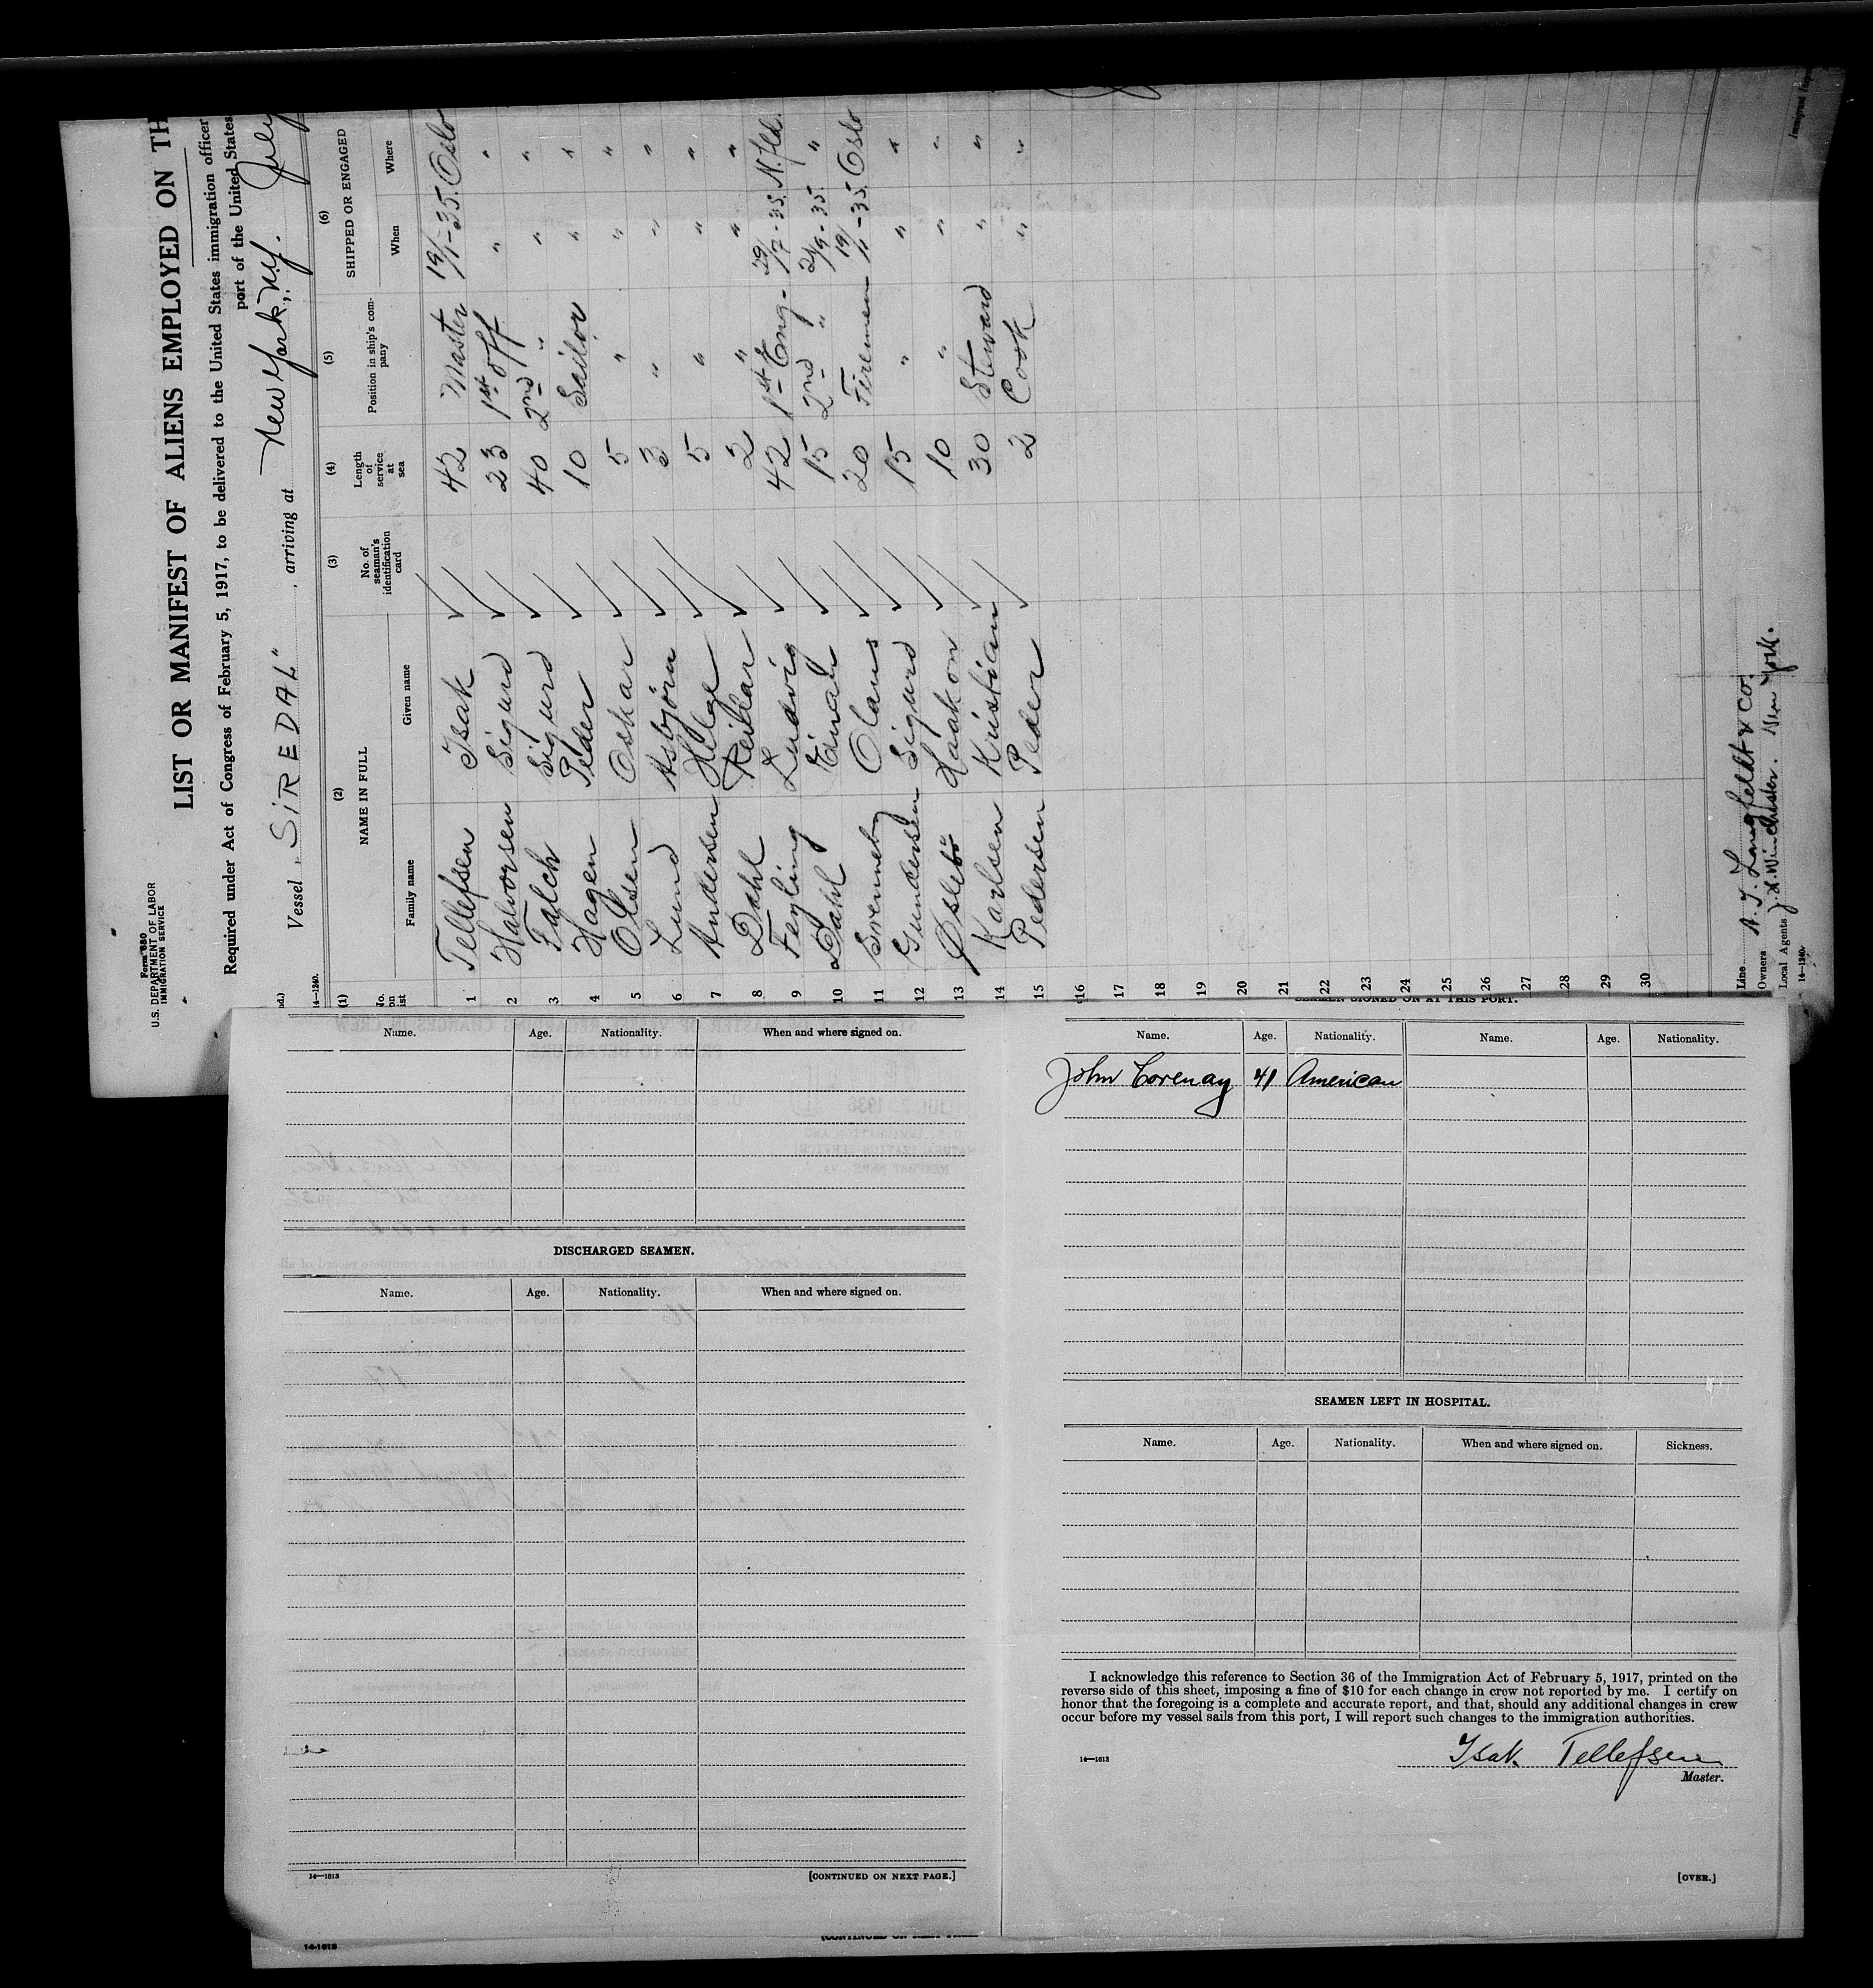 Form 680
U.S. DEPARTMENT OF LABOR
IMMIGRATION SERVICE
LIST OR MANIFEST OF ALIENS EMPLOYED ON TH
Required under Act of Congress of February 5, 1917, to be delivered to the United States immigration officer
port of the United States
Vessel "SiREDAL" arriving at New York, N.Y. July
14—1240.
(1) (2) (3) (4) (5) (6)
No. on list NAME IN FULL No. of seaman's identification card Length of service at sea Position in ship's company SHIPPED OR ENGAGED
Family name Given name When Where
1 Tellefsen Isak √ 42 Master 19/1-35. Oslo
2 Halvorsen Sigurd √ 23 1st off " "
3 Falch Sigurd √ 40 2nd " " "
4 Hagen Peder √ 10 Sailor " "
5 Olsen Oskar √ 5 " " "
6 Lund Asbjörn √ 3 " " "
7 Andersen Helge √ 5 " " "
8 Dahl Reidar √ 2 " " "
9 Feyling Ludvig √ 42 1st Eng- 29/7-35. N.fld.
10 Dahl Einar √ 15 2nd " 2/9-35. "
11 Svenneby Olaus √ 20 Firemen 19/11-35. Oslo
12 Gundersen Sigurd √ 15 " " "
13 Øslebö Haakon √ 10 " " "
14 Karlsen Kristian √ 30 Steward " "
15 Pedersen Peder √ 2 Cook " "
16
17
18
19
20
21
22
23
24
25
26
27
28
29
30
Line
Owners A. T. Langfeldt & Co.
Local Agents J. H. Winchester. New York.
14—1240.
Name. Age. Nationality. When and where signed on.
DISCHARGED SEAMEN.
Name. Age. Nationality. When and where signed on.
14—1613 [CONTINUED ON NEXT PAGE.]
14-1613
SEAMEN SIGNED ON AT THIS PORT.
Name. Age. Nationality. Name. Age. Nationality.
John Corenay 41 American
SEAMEN LEFT IN HOSPITAL.
Name. Age. Nationality. When and where signed on. Sickness.
I acknowledge this reference to Section 36 of the Immigration Act of February 5, 1917, printed on the
reverse side of this sheet, imposing a fine of $10 for each change in crew not reported by me. I certify on
honor that the foregoing is a complete and accurate report, and that, should any additional changes in crew
occur before my vessel sails from this port, I will report such changes to the immigration authorities.
14—1613
Isak Tellefsen
Master.
[OVER.]